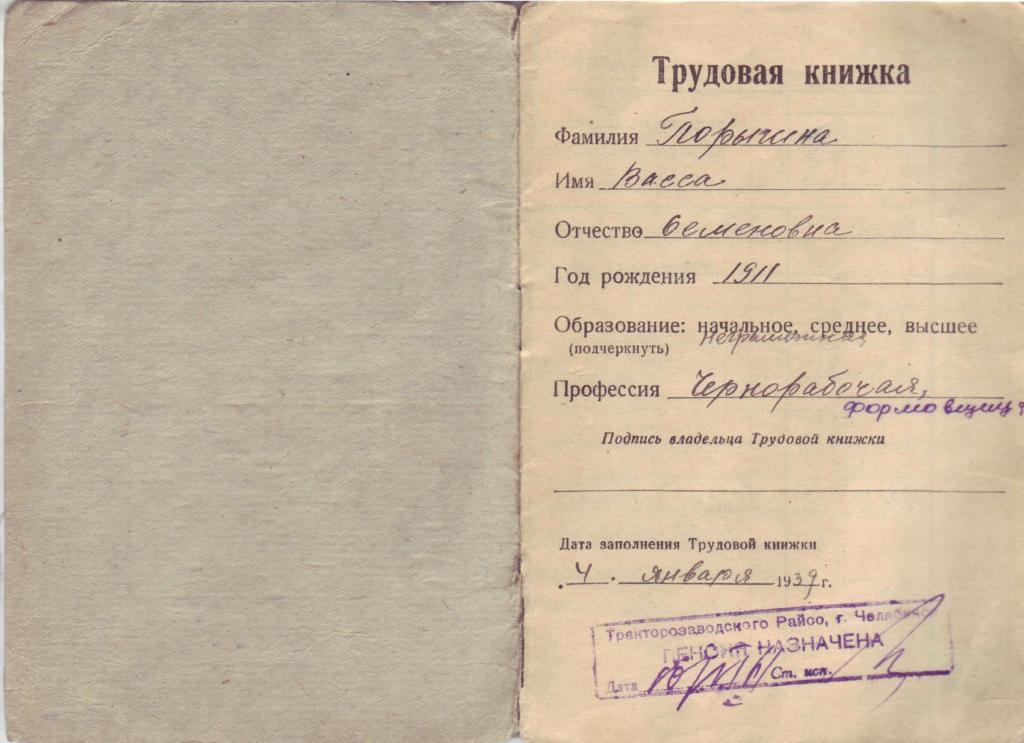 Трудовая книжка
Фамилия Порычина
Имя Васса
Отчество Семеновна
Год рождения 1911
Образование: начальное, среднее, высшее
(подчеркнуть) неграмотная
Профессия Чернорабочая,
формовщица
Подпись владельца Трудовой книжки
Дата заполнения Трудовой книжки
4. января 1939 г.
Тракторозаводского Райсо, г. Челябинск
ПЕНСИЯ НАЗНАЧЕНА
Дата Ст. исп.